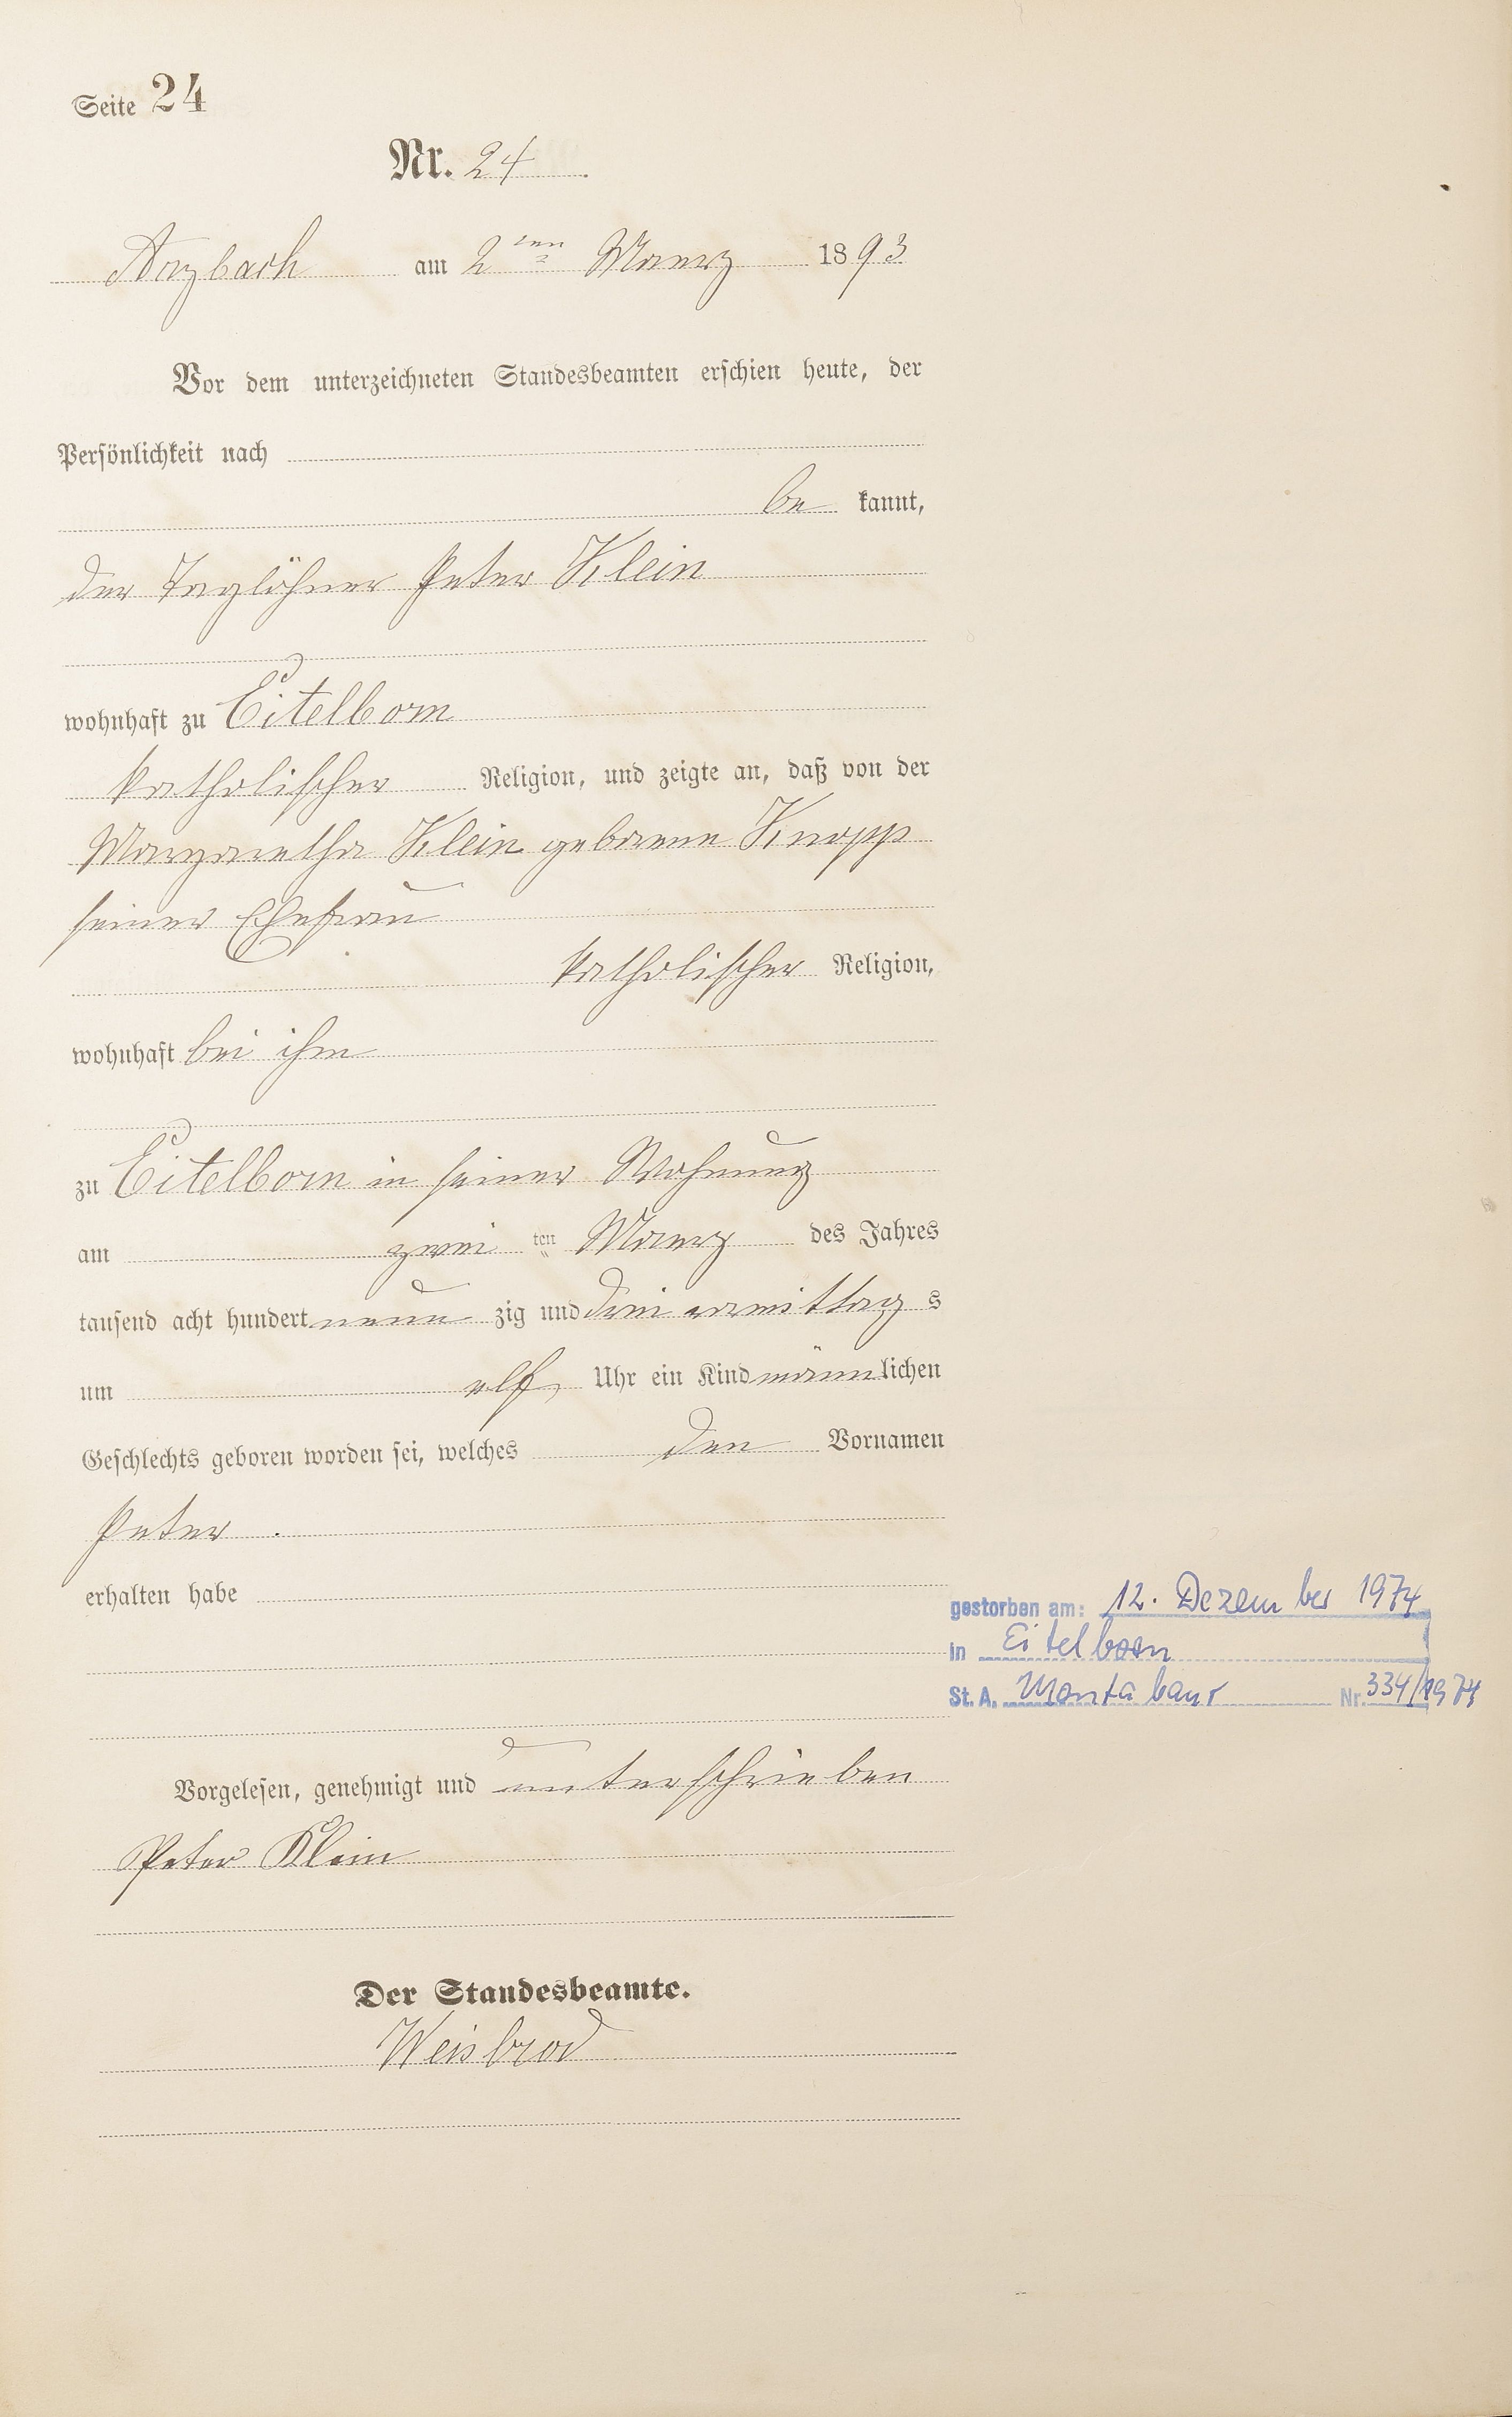 Seite 24
Nr. 24
Arzbach am 2ten Maerz 1893
Vor dem unterzeichneten Standesbeamten erschien heute, der
Persönlichkeit nach
be kannt,
der Taglöhner Peter Klein
wohnhaft zu Eitelborn
katholischer Religion, und zeigte an, daß von der
Margaretha Klein geborene Knopp
seiner Ehefrau
katholischer Religion,
wohnhaft bei ihm
zu Eitelborn in seiner Wohnung
am zwei ten Maerz des Jahres
tausend acht hundert neun zig und drei vormittag s
um elf Uhr ein Kind männlichen
Geschlechts geboren worden sei, welches den Vornamen
Peter.
erhalten habe
gestorben am: 12. Dezember 1974
in Eitelborn
St. A. Montabaur Nr. 334/1974
Vorgelesen, genehmigt und unterschrieben
Peter Klein
Der Standesbeamte.
Weisbrod